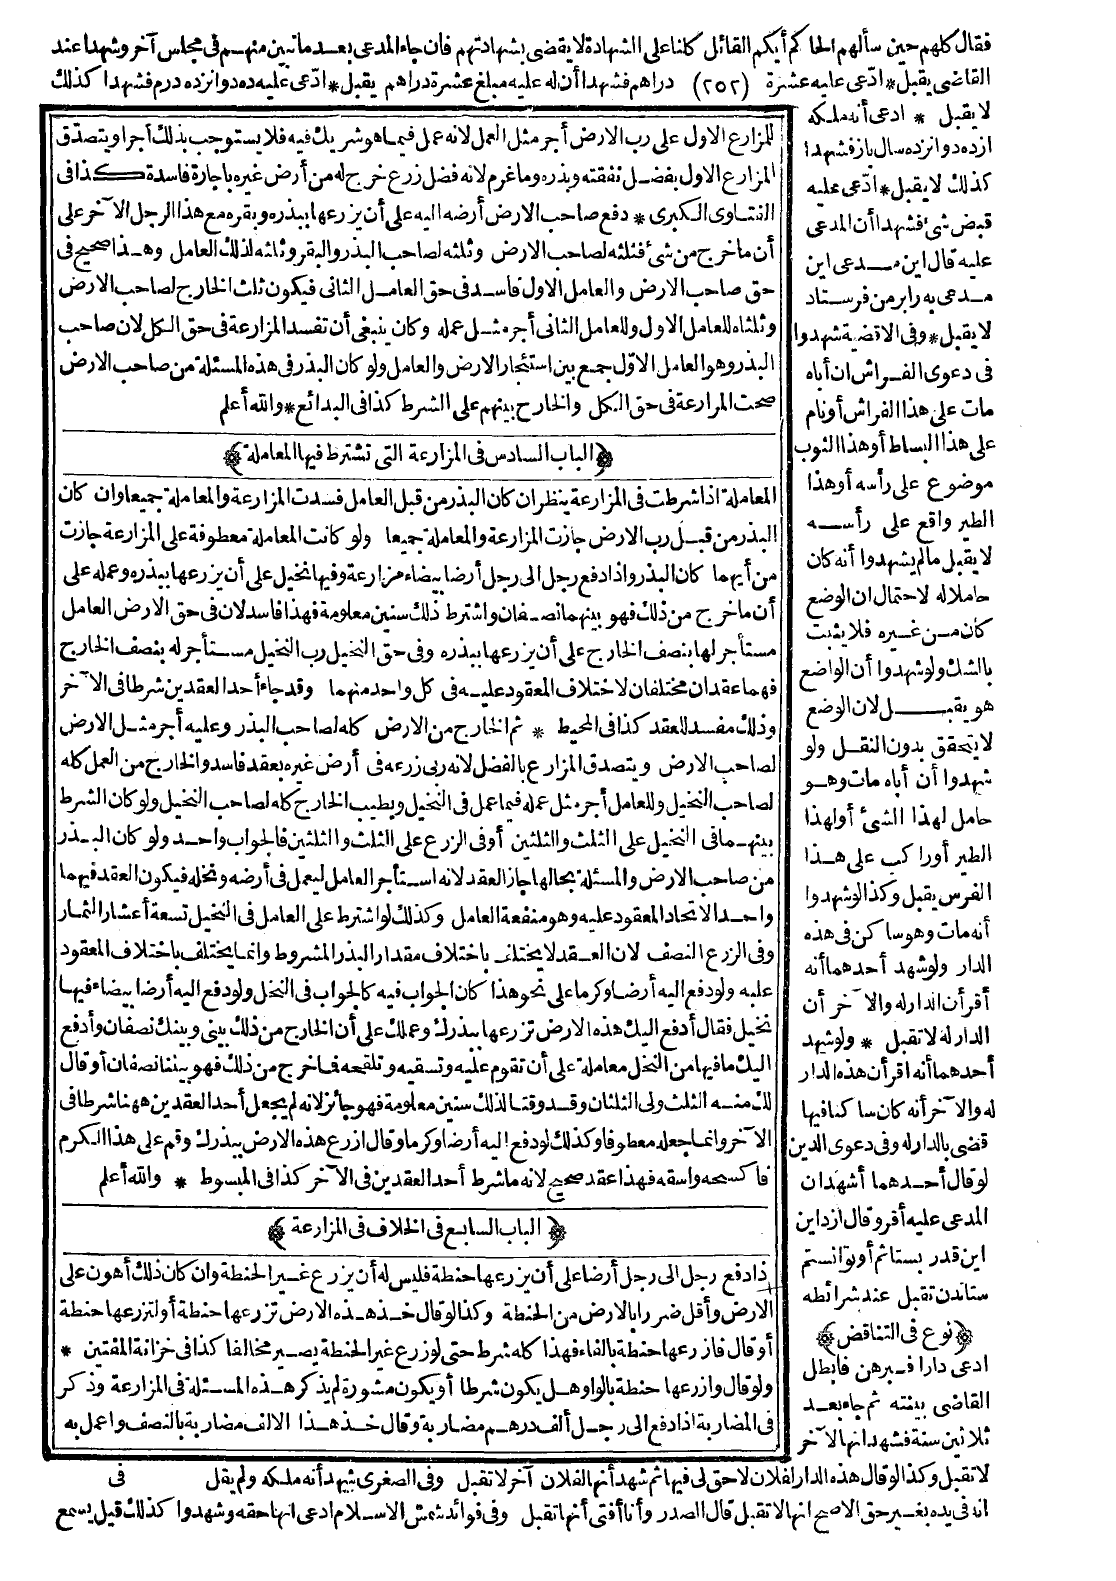 فقال كلهم حين سألهم الحاكم أيكم القائل كلنا على الشهادة لا يقضى بشهادتهم فان جاء المدعى بعد ما تبين منهم فى مجلس آخر وشهدا عند
القاضى يقبل * ادّعى عليه عشرة (٢٥٢) دراهم فشهدا أن له عليه مبلغ عشرة دراهم يقبل * ادّعى عليه ده دوانزده درم فشهدا كذلك
لا يقبل * ادعى أنه ملكه
ازده دوانزده سال باز فشهدا
كذلك لا يقبل * ادّعى عليه
قبض شئ فشهدا أن المدعى
عليه قال اين مدعى اين
مدعى به رابر من فرستاد
لا يقبل * وفى الاقضية شهدوا
فى دعوى الفراش ان أباه
مات على هذا الفراش أو نام
على هذا البساط أو هذا الثوب
موضوع على رأسه أو هذا
الطير واقع على رأسه
لا يقبل مالم يشهدوا أنه كان
حاملا له لاحتمال ان الوضع
كان من غيره فلا يثبت
بالشك ولو شهدوا أن الواضع
هو يقبل لان الوضع
لا يتحقق بدون النقل ولو
شهدوا أن أباه مات وهو
حامل لهذا الشئ أو لهذا
الطير أو راكب على هذا
الفرس يقبل وكذا لو شهدوا
أنه مات وهو ساكن فى هذه
الدار ولو شهد أحدهما أنه
أقر أن الدار له والآخر أن
الدار له لا تقبل * ولو شهد
أحدهما أنه اقر أن هذه الدار
له والآخر أنه كان ساكنا فيها
قضى بالدار له وفى دعوى الدين
لو قال أحدهما أشهد أن
المدعى عليه أقر وقال ازداين
اين قدر بستاتم أو توانستم
ستاندن تقبل عند شرائطه
﴿نوع فى التناقض﴾
ادعى دارا فبرهن فأبطل
القاضى بينته ثم جاء بعد
ثلاثين سنة فشهد انها لآخر
للمزارع الاول على رب الارض أجر مثل العمل لانه عمل فيما هو شريك فيه فلا يستوجب بذلك أجرا ويتصدّق
المزارع الاول بفضل نفقته وبذره وما غرم لانه فضل زرع خرج له من أرض غيره باجارة فاسدة كذا فى
الفتاوى الكبرى * دفع صاحب الارض أرضه اليه على أن يزرعها ببذره وبقره مع هذا الرجل الآخر على
أن ما خرج من شئ فثلثه لصاحب الارض وثلثه لصاحب البذر والبقر وثلثه لذلك العامل وهذا صحيح فى
حق صاحب الارض والعامل الاول فاسد فى حق العامل الثانى فيكون ثلث الخارج لصاحب الارض
وثلثاه للعامل الاول وللعامل الثانى أجر مثل عمله وكان ينبغى أن تفسد المزارعة فى حق الكل لان صاحب
البذر وهو العامل الاوّل جمع بين استئجار الارض والعامل ولو كان البذر فى هذه المسئلة من صاحب الارض
صحت المزارعة فى حق الكل والخارج بينهم على الشرط كذا فى البدائع * والله أعلم
﴿الباب السادس فى المزارعة التى تشترط فيها المعاملة﴾
المعاملة اذا شرطت فى المزارعة ينظر ان كان البذر من قبل العامل فسدت المزارعة والمعاملة جميعا وان كان
البذر من قبل رب الارض جازت المزارعة والمعاملة جميعا ولو كانت المعاملة معطوفة على المزارعة جازت
من أيهما كان البذر واذا دفع رجل الى رجل أرضا بيضاء مزارعة وفيها نخيل على أن يزرعها ببذره وعمله على
أن ما خرج من ذلك فهو بينهما نصفان واشترط ذلك سنين معلومة فهذا فاسد لان فى حق الارض العامل
مستأجر لها بنصف الخارج على أن يزرعها ببذره وفى حق النخيل رب النخيل مستأجر له بنصف الخارج
فهما عقدان مختلفان لاختلاف المعقود عليه فى كل واحد منهما وقد جاء أحد العقدين شرطا فى الآخر
وذلك مفسد للعقد كذا فى المحيط * ثم الخارج من الارض كله لصاحب البذر وعليه أجر مثل الارض
لصاحب الارض ويتصدق المزارع بالفضل لانه ربى زرعه فى أرض غيره بعقد فاسد والخارج من العمل كله
لصاحب النخيل وللعامل أجر مثل عمله فيما عمل فى النخيل ويطيب الخارج كله لصاحب النخيل ولو كان الشرط
بينهما فى النخيل على الثلث والثلثين أو فى الزرع على الثلث والثلثين فالجواب واحد ولو كان البذر
من صاحب الارض والمسئلة بحالها جاز العقد لانه استأجر العامل ليعمل فى أرضه ونخله فيكون العقد فيهما
واحدا لاتحاد المعقود عليه وهو منفعة العامل وكذلك لو اشترط على العامل فى النخيل تسعة أعشار الثمار
وفى الزرع النصف لان العقد لا يختلف باختلاف مقدار البذر المشروط وانما يختلف باختلاف المعقود
عليه ولو دفع اليه أرضا وكرما على نحو هذا كان الجواب فيه كالجواب فى النخل ولو دفع اليه أرضا بيضاء فيها
نخيل فقال أدفع اليك هذه الارض تزرعها ببذرك وعملك على أن الخارج من ذلك بينى وبينك نصفان وأدفع
اليك ما فيها من النخل معاملة على أن تقوم عليه وتسقيه وتلقحه فما خرج من ذلك فهو بيننا نصفان أو قال
لك منه الثلث ولى الثلثان وقد وقتا لذلك سنين معلومة فهو جائز لانه لم يجعل أحد العقدين ههنا شرطا فى
الآخر وانما جعله معطوفا وكذلك لو دفع اليه أرضا وكرما وقال ازرع هذه الارض ببذرك وقم على هذا الكرم
فاكسحه واسقه فهذا عقد صحيح لانه ما شرط أحد العقدين فى الآخر كذا فى المبسوط * والله أعلم
﴿الباب السابع فى الخلاف فى المزارعة﴾
اذا دفع رجل الى رجل أرضا على أن يزرعها حنطة فليس له أن يزرع غير الحنطة وان كان ذلك أهون على
الارض وأقل ضررا بالارض من الحنطة وكذا لو قال خذ هذه الارض تزرعها حنطة أو لتزرعها حنطة
أو قال فازرعها حنطة بالفاء فهذا كله شرط حتى لو زرع غير الحنطة يصير مخالفا كذا فى خزانة المفتين *
ولو قال وازرعها حنطة بالواو هل يكون شرطا أو يكون مشورة لم يذكر هذه المسئلة فى المزارعة وذكر
فى المضاربة اذا دفع الى رجل ألف درهم مضاربة وقال خذ هذا الالف مضاربة بالنصف واعمل به
لا تقبل وكذا لو قال هذه الدار لفلان لا حق لى فيها ثم شهد أنها لفلان آخر لا تقبل وفى الصغرى شهد أنه ملكه ولم يقل فى
انه فى يده بغير حق الاصح انها لا تقبل قال الصدر وأنا أفتى أنها تقبل وفى فوائد شمس الاسلام ادعى انها حقه وشهدوا كذلك قيل يسمع